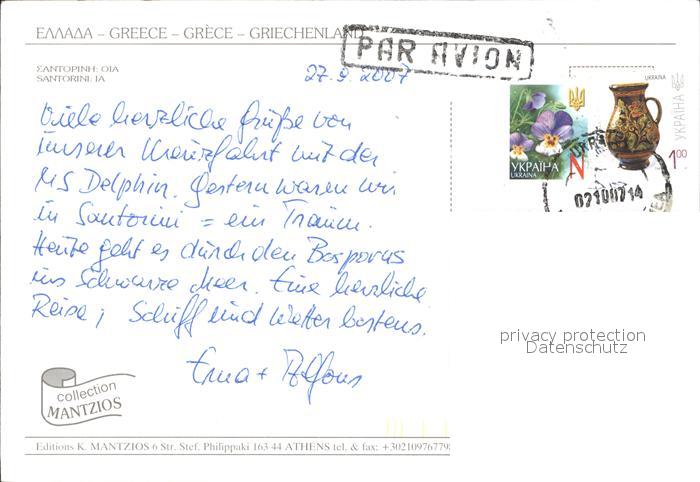 ΕΛΛΑΔΑ – GREECE – GRÈCE – GRIECHENLAND
PAR AVION
ΣΑΝΤΟΡΙΝΗ: ΟΙΑ
SANTORINI: IA
27.9.2007
Viele herzliche Grüße von
unserer Kreuzfahrt mit der
MS Delphin. Gestern waren wir
in Santorini = ein Traum.
Heute geht es durch den Bosporus
ins Schwarze Meer. Eine herzliche
Reise; Schiff und Wetter bestens.
Erna + Alfons
УКРАЇНА
UKRAINA
N
UKRAINA
УКРАЇНА
1.00
UKRA
021007 14
privacy protection
Datenschutz
collection
MANTZIOS
Editions K. MANTZIOS 6 Str. Stef. Philippaki 163 44 ATHENS tel. & fax: +3021097679